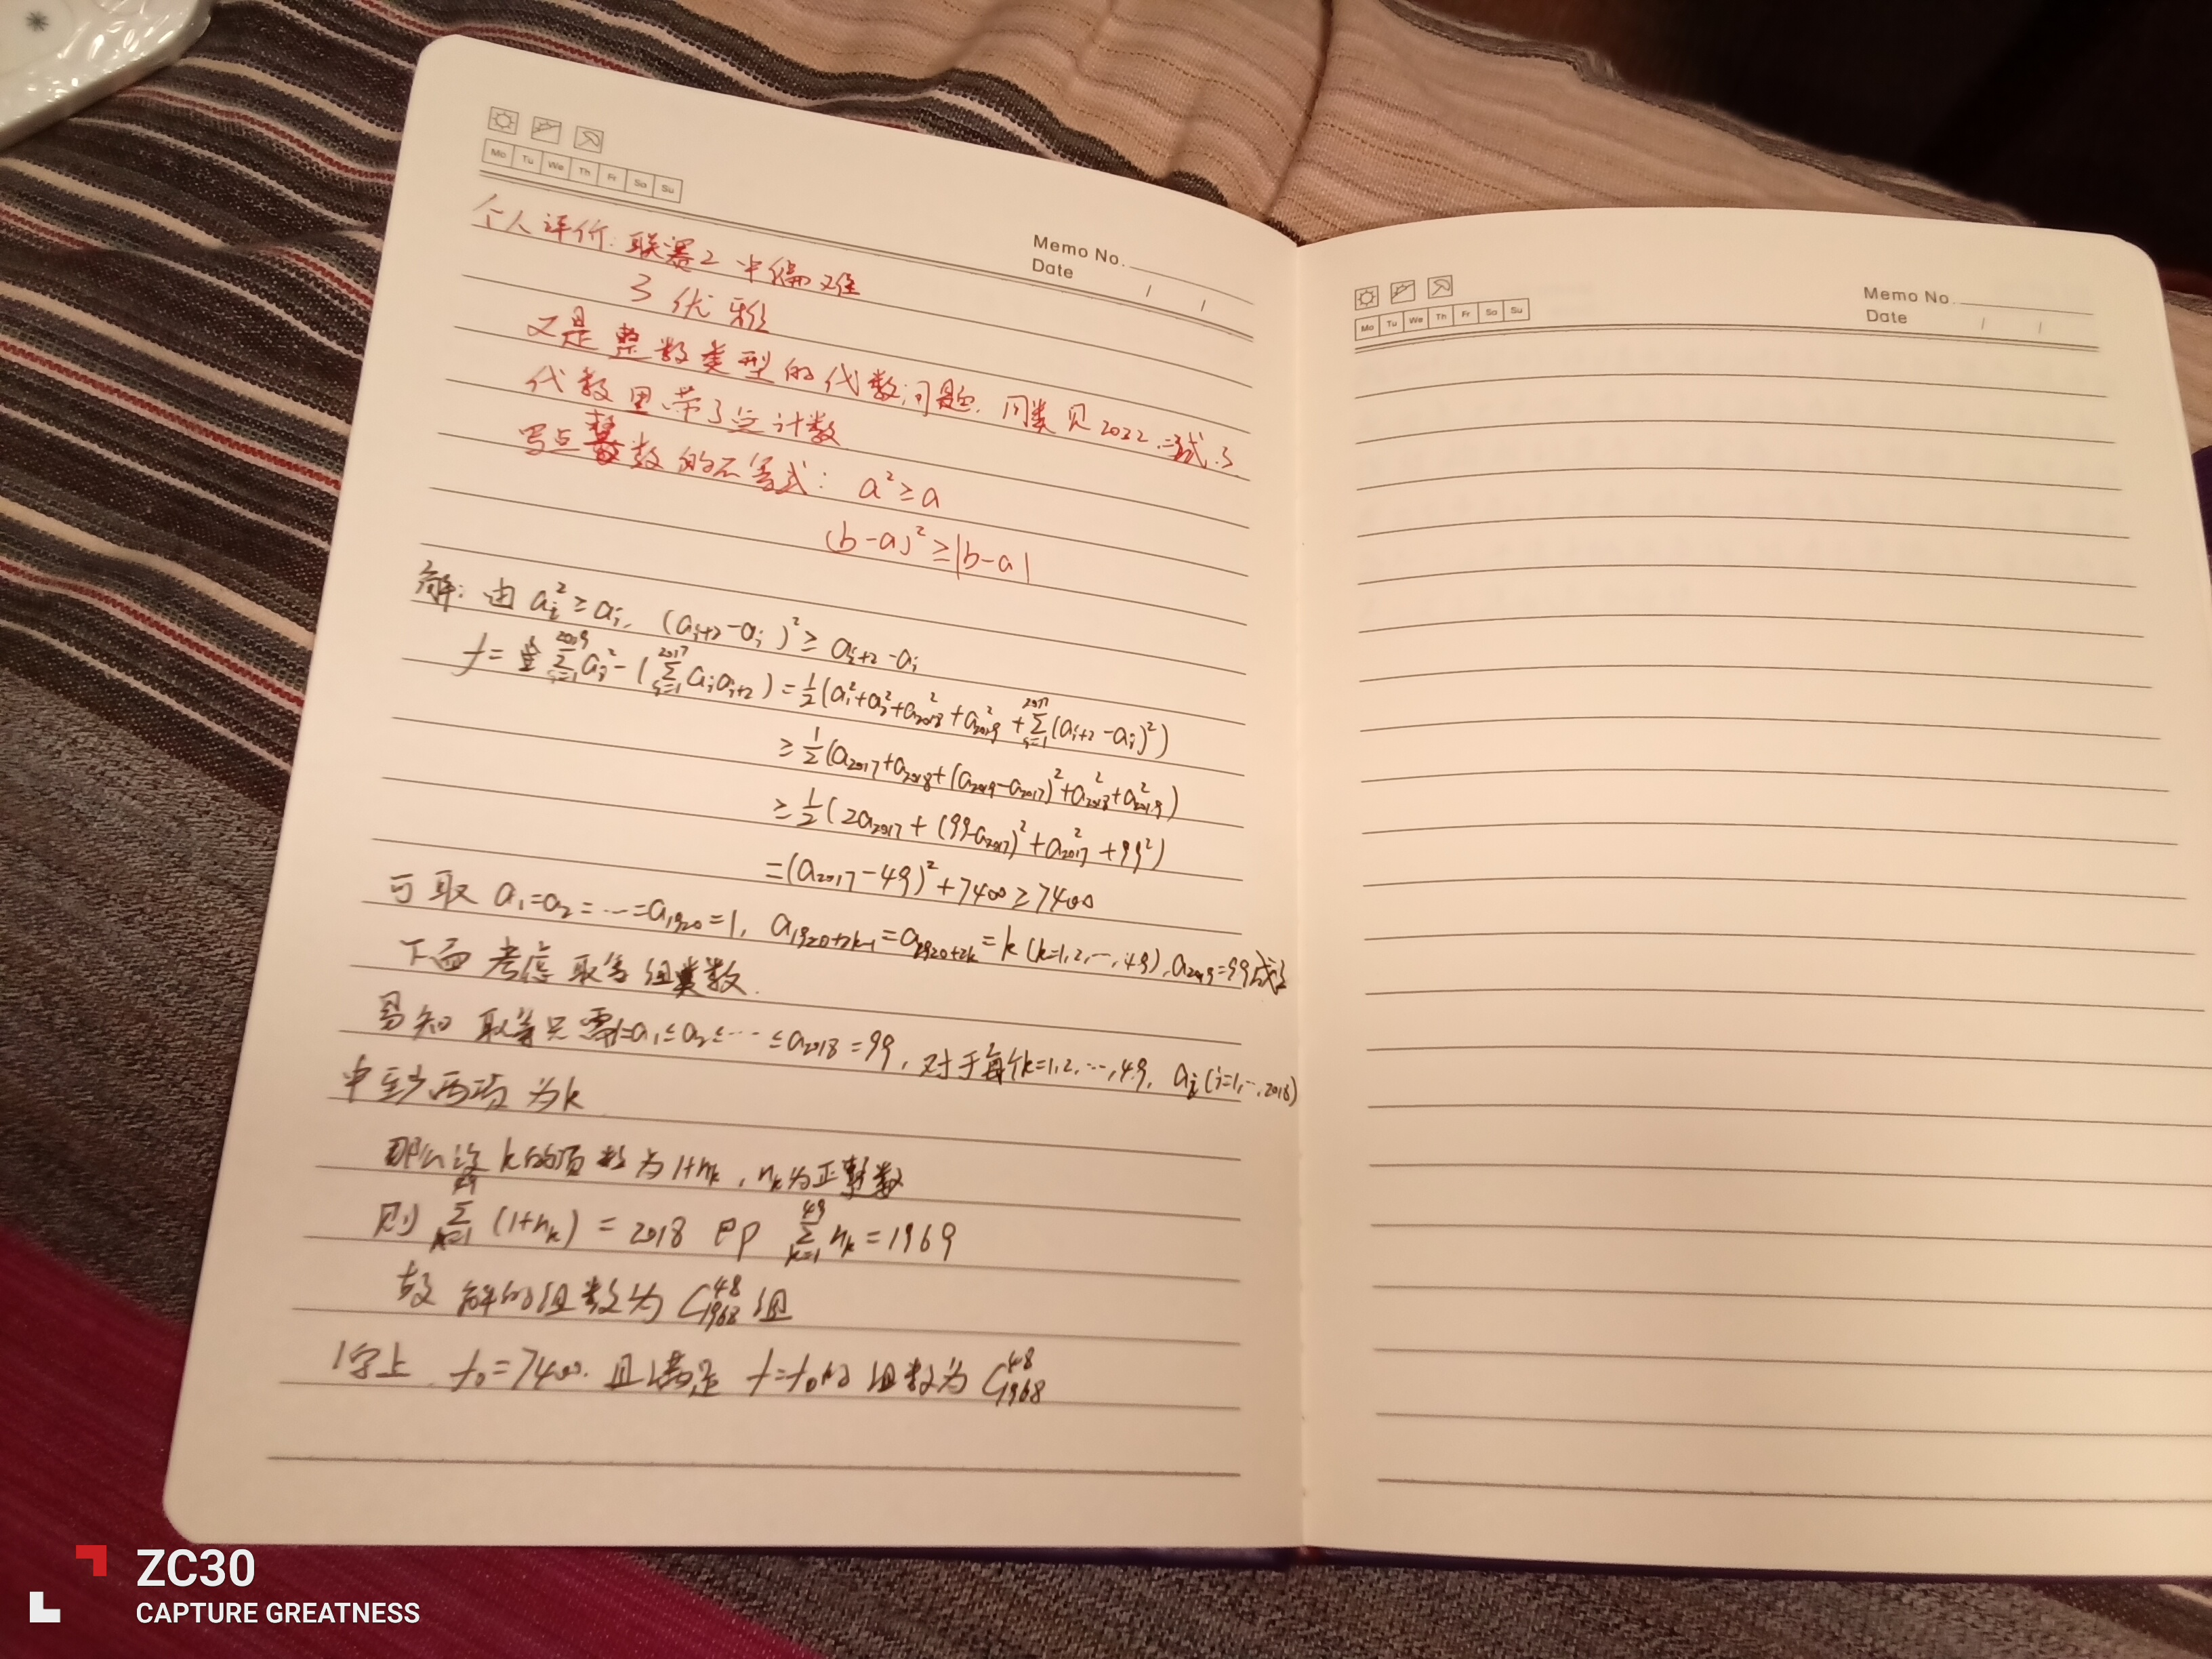 Mo Tu We Th Fr Sa Su
Memo No.
Date / /
个人评价: 联赛2 中偏难
3 优雅
又是整数类型的代数问题. 同类见2022.二试.3
代数里带了点计数
写点整数的不等式: a²≥a
(b-a)²≥|b-a|
解: 由 a_i²≥a_i, (a_{i+2}-a_i)²≥a_{i+2}-a_i
f=∑_{i=1}^{2019}a_i²-(∑_{i=1}^{2017}a_ia_{i+2})=½(a_1²+a_2²+a_{2018}²+a_{2019}²+∑_{i=1}^{2017}(a_{i+2}-a_i)²)
≥½(a_{2017}+a_{2018}+(a_{2019}-a_{2017})²+a_{2018}²+a_{2019}²)
≥½(2a_{2017}+(99-a_{2017})²+a_{2017}²+99²)
=(a_{2017}-49)²+7400≥7400
可取 a_1=a_2=…=a_{1920}=1, a_{1920+2k-1}=a_{1920+2k}=k(k=1,2,…,49), a_{2019}=99成立
下面考虑取等组数.
易知 取等只需1=a_1≤a_2≤…≤a_{2018}=99, 对于每个k=1,2,…,49, a_i(i=1,…,2018)
中至少两项为k
那么设k的项数为1+n_k, n_k为正整数
则 ∑_{k=1}^{49}(1+n_k)=2018 即 ∑_{k=1}^{49}n_k=1969
故 解的组数为C_{1968}^{48}组
综上 f_0=7400. 且满足 f=f_0的组数为C_{1968}^{48}
Memo No.
Date / /
Mo Tu We Th Fr Sa Su
ZC30
CAPTURE GREATNESS